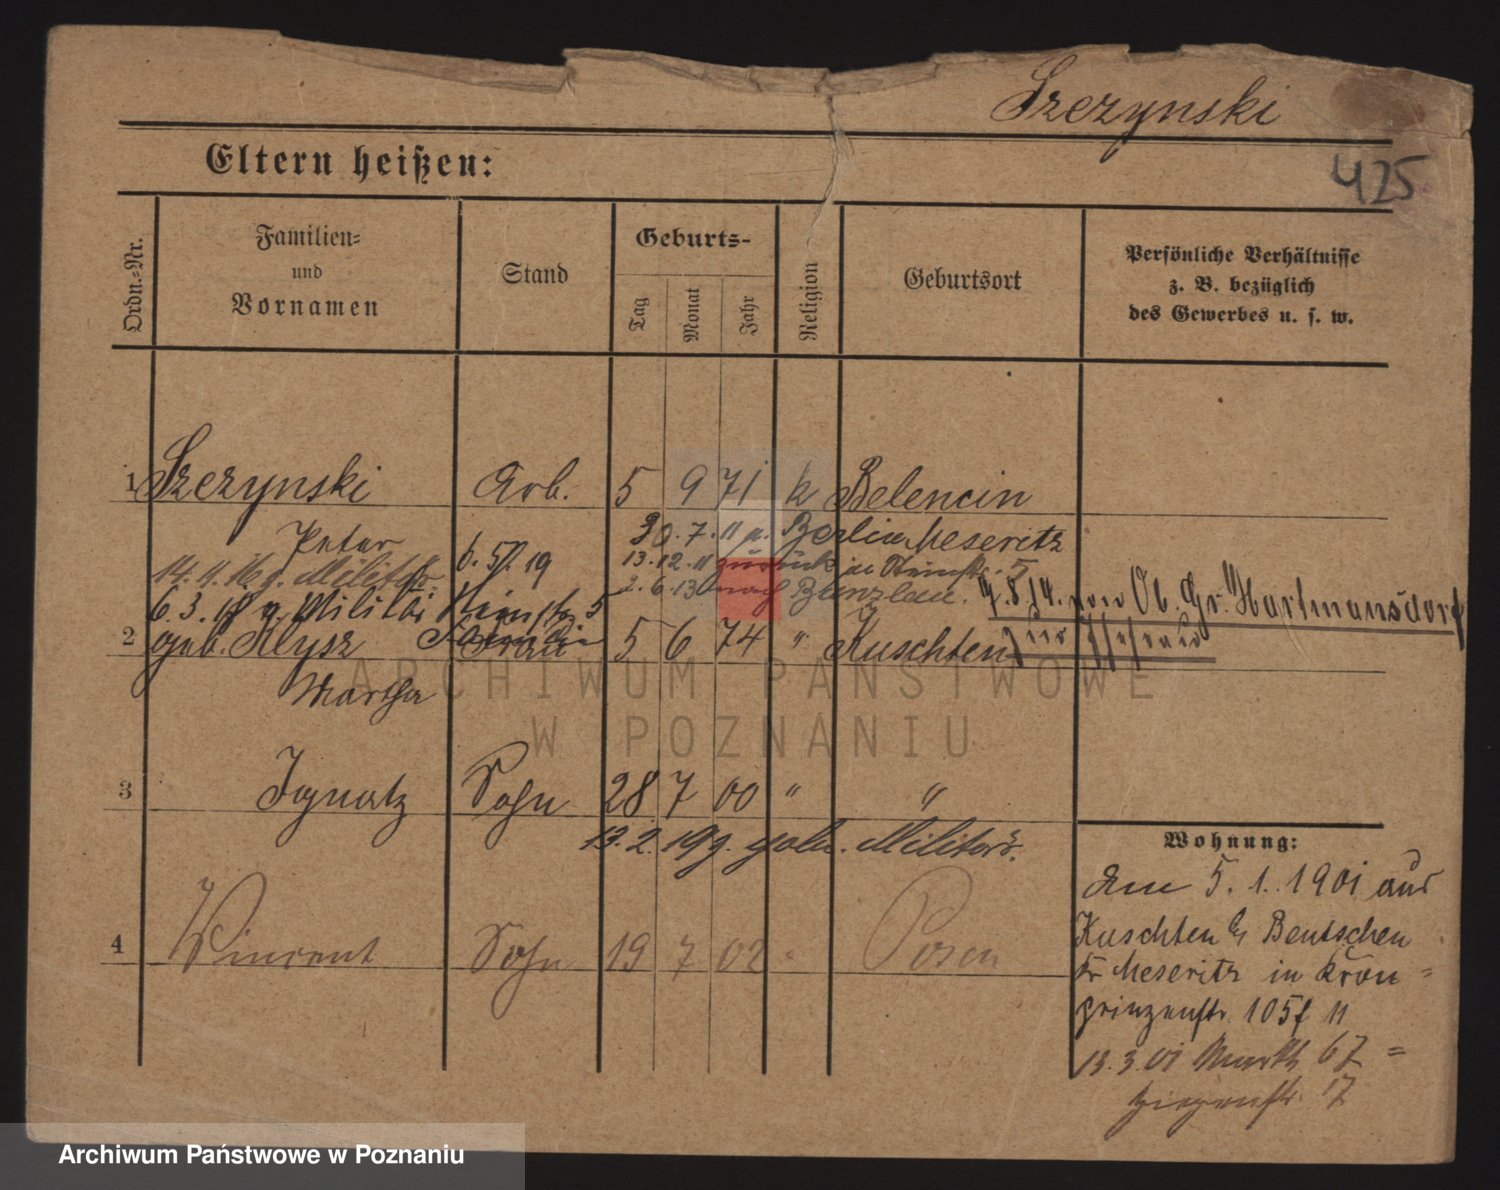 Szczynski
425
Eltern heißen:
Ordn.-Nr.
Familien-
und
Vornamen
Stand
Geburts-
Tag
Monat
Jahr
Religion
Geburtsort
Persönliche Verhältnisse
z. B. bezüglich
des Gewerbes u. s. w.
1 Szczynski Arb. 5 9 71 k Belencin
Peter
30.7.11 n. Berlin Meseritz
13.12.11 zurück in 5
14.4.16 g. Militär
2.6.13 nach Bunzlau.
9.5.14. von Ob. Gr. Hartmansdorf
6.3.18 g. Militär
2 geb. Klysz Frau 5 6 74 " Kuschten
Martha
ARCHIWUM PAŃSTWOWE
W POZNANIU
3 Ignatz Sohn 28 7 00 " "
13.2.19 g. poln. Militär.
Wohnung:
4 Vincent Sohn 19 7 02 " Posen
Am 5.1.1901 aus
Kuschten b/ Bentschen
Kr Meseritz in Kron=
prinzenstr. 105f II
13.3.01 Markt 67=
17
Archiwum Państwowe w Poznaniu